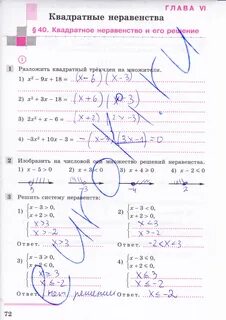 ГЛАВА VI
Квадратные неравенства
§ 40. Квадратное неравенство и его решение
1 Разложить квадратный трёхчлен на множители.
1) x² − 9x + 18 = (x − 6)(x − 3)
2) x² + 3x − 18 = (x + 6)(x − 3)
3) 2x² + x − 6 =
4) −3x² + 10x − 3 =
2 Изобразить на числовой оси множество решений неравенства.
1) x − 5 > 0
3 Решить систему неравенств:
1) { x − 3 > 0, x + 2 > 0,
x > 3
x > −2
Ответ. x > 3
2) { x − 3 < 0, x + 2 > 0,
x < 3
x > −2
Ответ. −2 < x < 3
3)
x ≥ 3
x ≤ −2
Ответ. нет решений
4)
x ≤ 3
x ≤ −2
Ответ. x ≤ −2
72